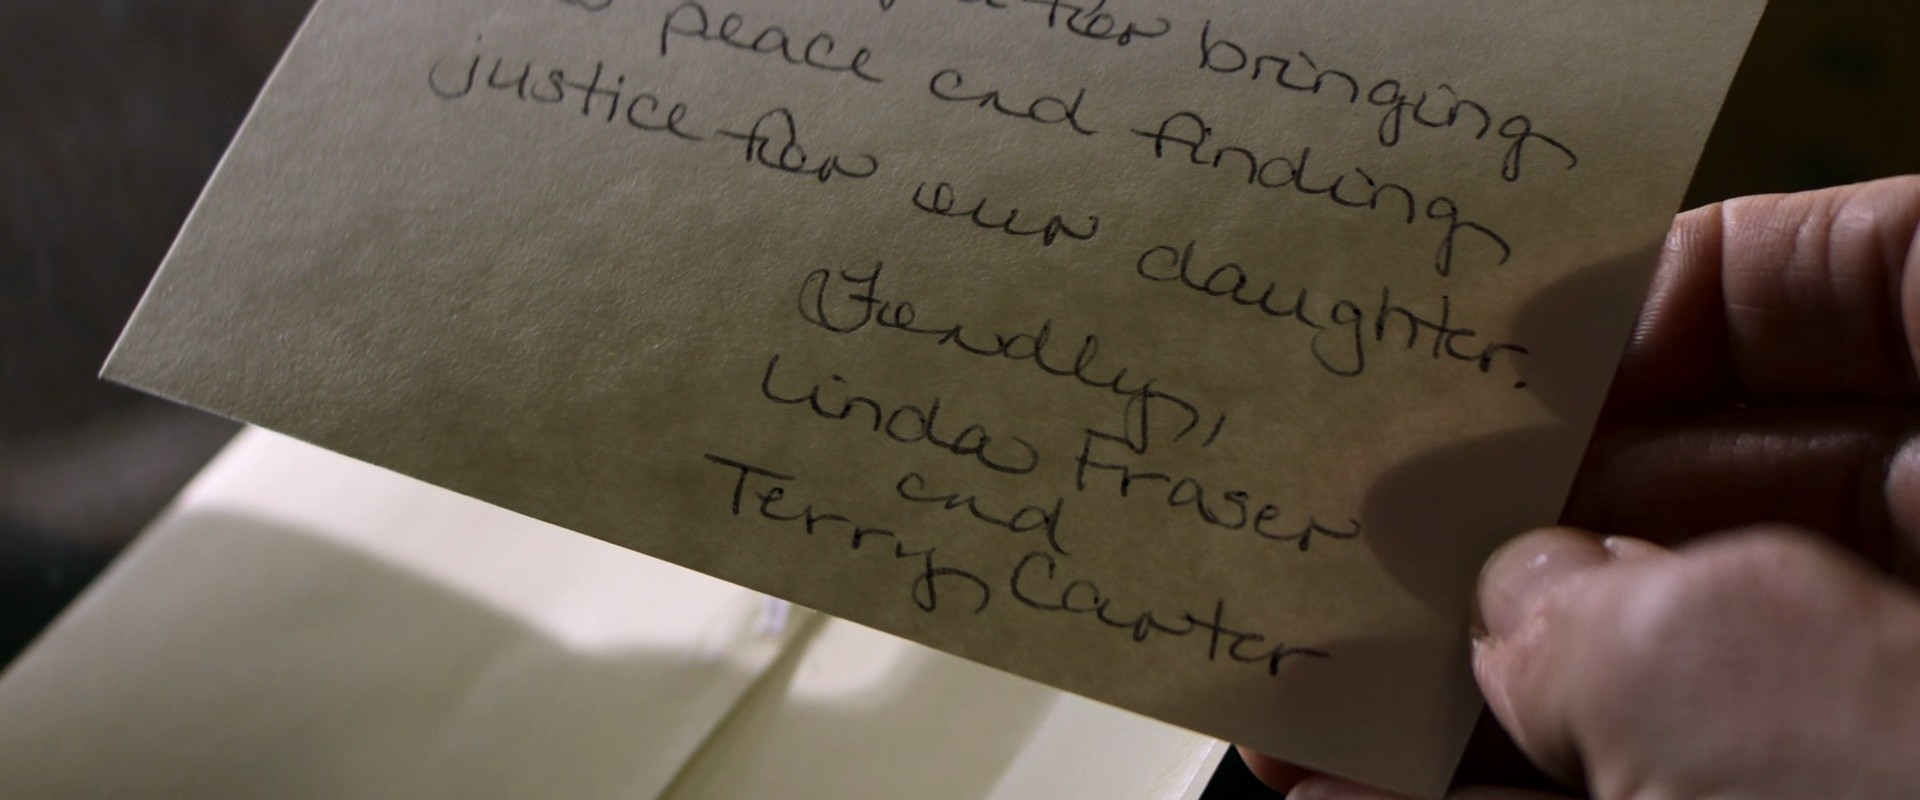 for bringing
peace and finding
justice for our daughter.
Fondly,
Linda Fraser
and
Terry Carter